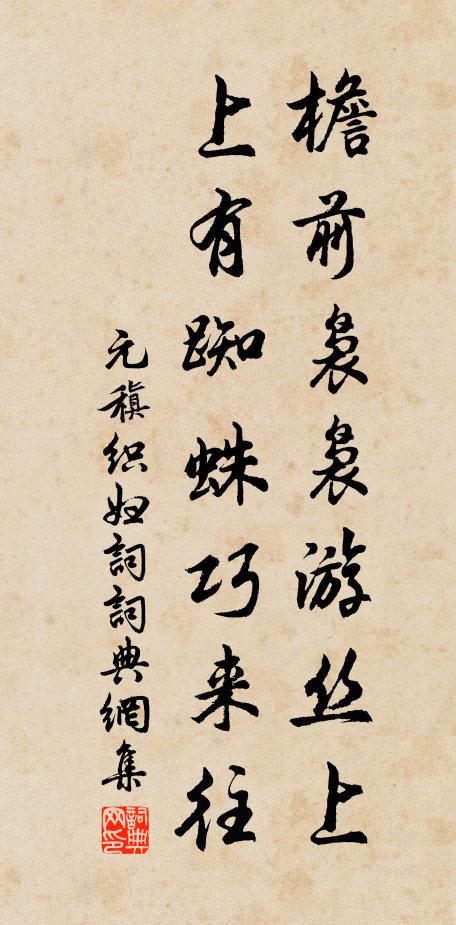 檐前袅袅游丝上
上有蜘蛛巧来往
元稹织妇詞詞典網集
詞典网印